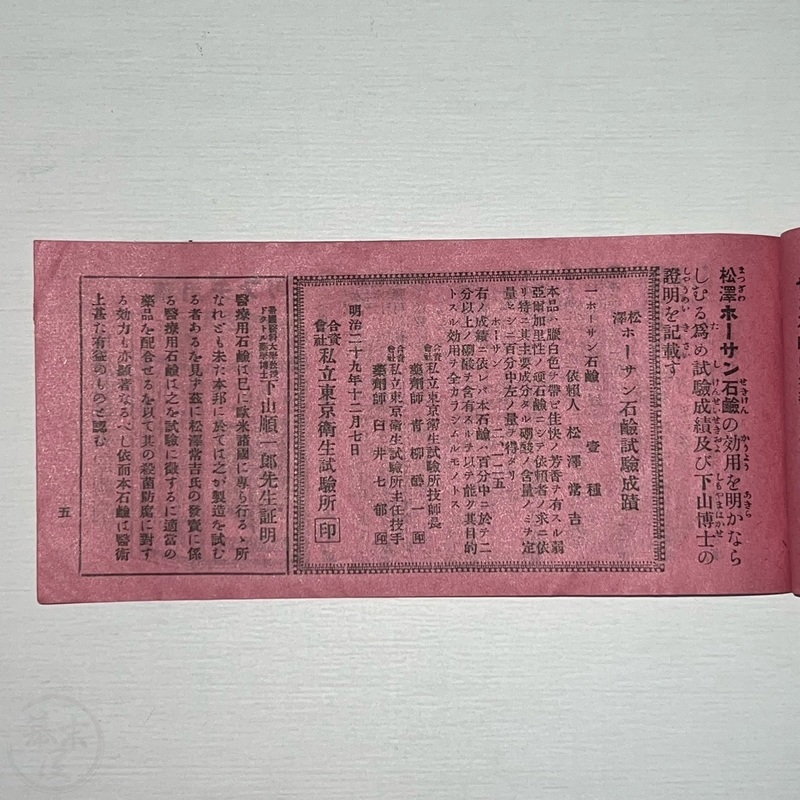 松澤ホーサン石鹼の効用を明かなら
しむる爲め試驗成績及び下山博士の
證明を記載す
松澤ホーサン石鹼試驗成蹟
一ホーサン石鹼 壹種
依賴人 松澤常吉
本品ハ臘白色ヲ帶ビ佳快ノ芳香ヲ有スル弱
亞爾加里性ノ硬石鹼ニシテ依賴者ノ求ニ依
リ特ニ其主要成分タル硼酸ノ含量ノミヲ定
量セシニ百分中左ノ量ヲ得タリ
ホーサン 二、一二五
右ノ成績ニ依レバ本石鹼ハ百分中ニ於テ二
分以上ノ硼酸ヲ含有スルヲ以テ能ク其目的
トスル効用ヲ全カラシムルモノトス
合資會社私立東京衛生試驗所技師長
藥劑師 青柳 一 印
合資會社私立東京衛生試驗所主任技手
藥劑師 臼井七郁 印
明治二十九年十二月七日
合資會社 私立東京衛生試驗所 印
下山順一郎先生証明
醫療用石鹼は已に歐米諸國に專ら行るゝ所
なれども未だ本邦に於ては之が製造を試む
る者あるを見ず茲に松澤常吉氏の發賣に係
る醫療用石鹼は之を試驗に徵するに適當の
藥品を配合せるを以て其の殺菌防腐に對す
る効力も亦顯著なるべし依而本石鹼は醫術
上甚だ有益のものと認む
五